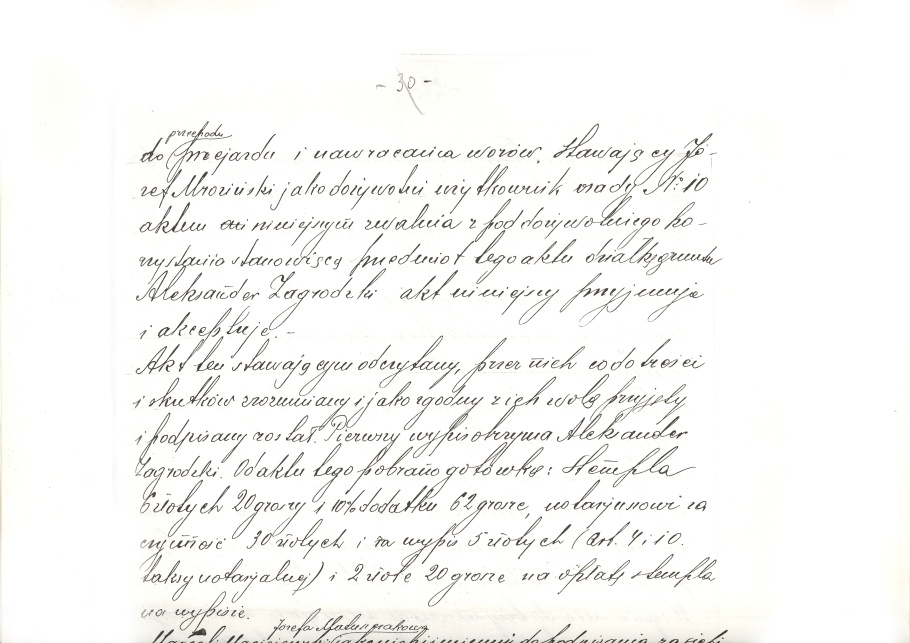 - 30 -
przechodu
do przejazdu i nawracania wozów. Stawający Jó-
zef Mroziński jako dożywotni użytkownik osady № 10
aktem niniejszym zwalnia z pod dożywotniego ko-
rzystania stanowiącą przedmiot tego aktu działkę gruntu
Aleksander Zagrodzki akt niniejszy przyjmuje
i akceptuje.-
Akt ten stawającym odczytany, przez nich co do treści
i skutków zrozumiany i jako zgodny z ich wolą przyjęty
i podpisany został. Pierwszy wypis otrzyma Aleksander
Zagrodzki. Od aktu tego pobrano gotówką: stempla
6 złotych 20 groszy i 10% dodatku 62 grosze, notarjuszowi za
czynność 30 złotych i za wypis 5 złotych (art. 4 i 10.
taksy notarjalnej) i 2 złote 20 grosze na opłatę stempla
na wypisie.
Józefa Matuszakowa